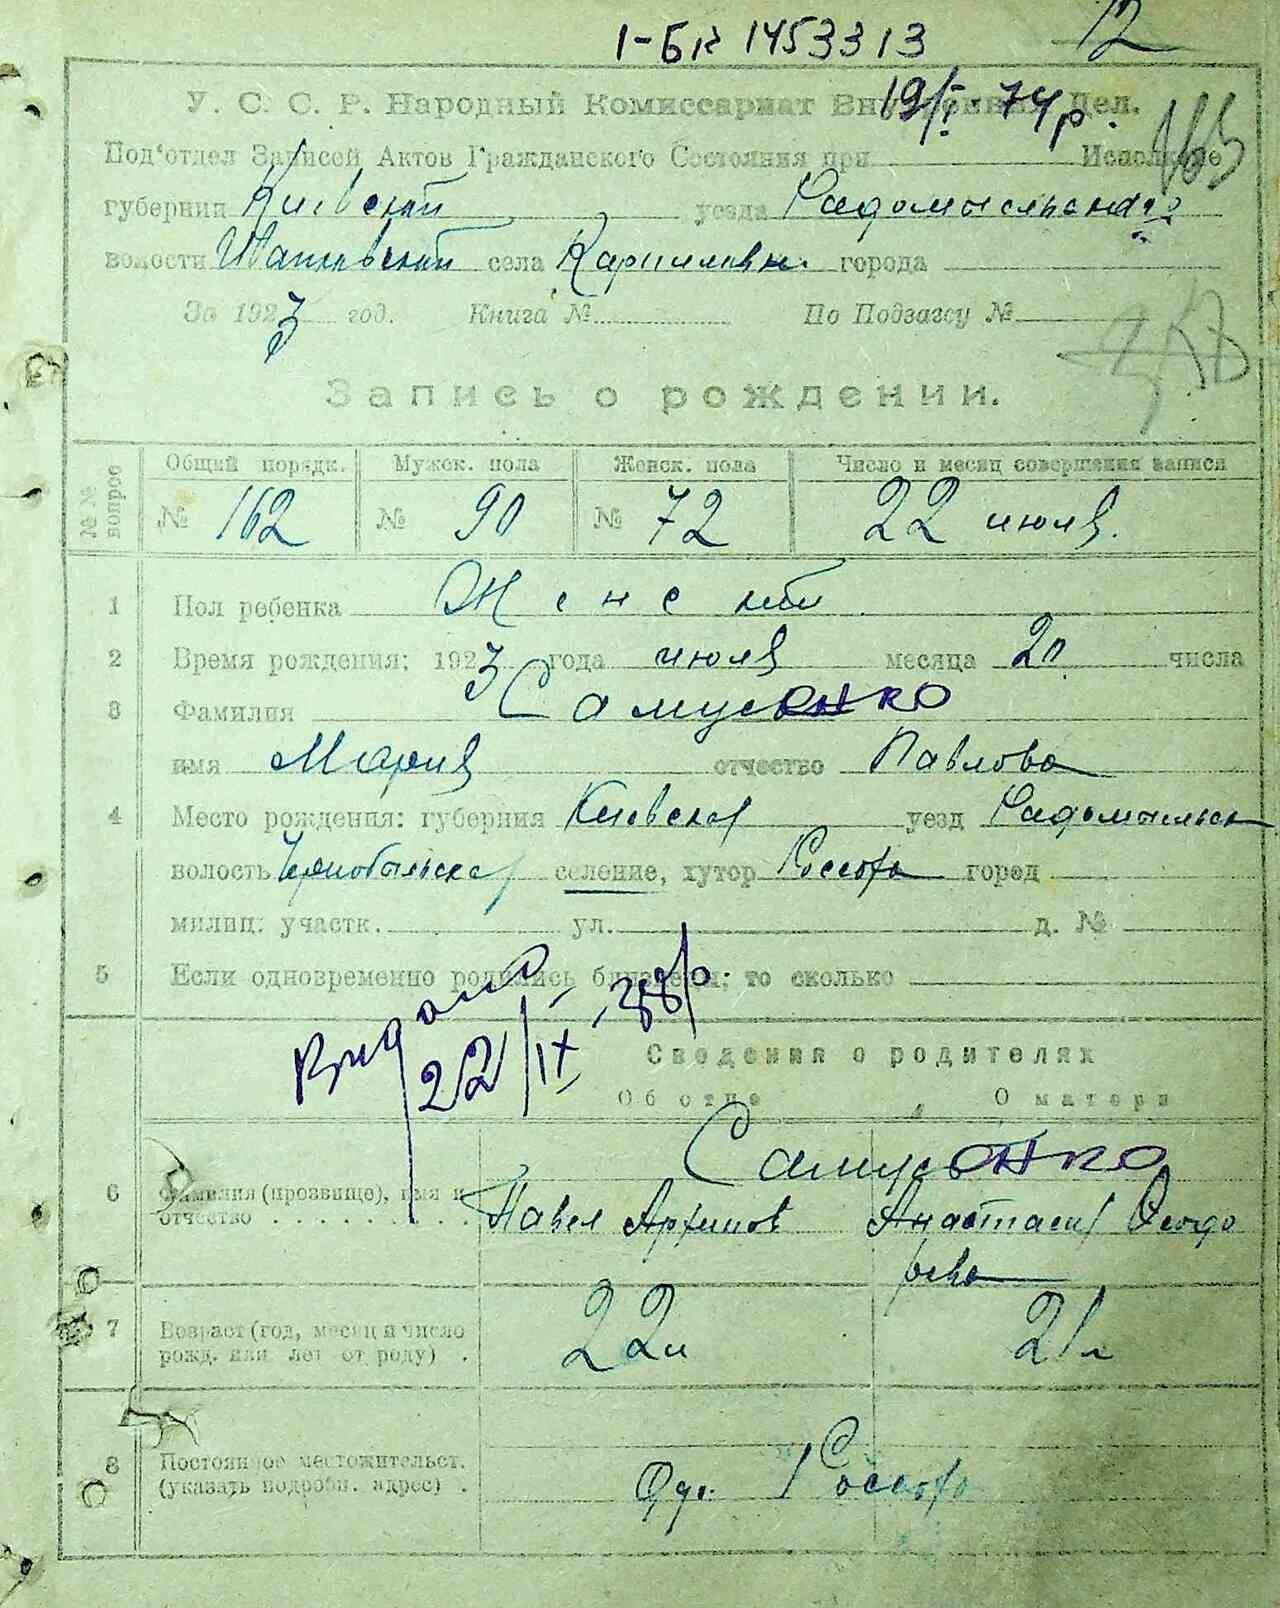 1-БК 1453313
12
У. С. С. Р. Народный Комиссариат Внутренних Дел.
19/I-74р.
Под‘отдел Записей Актов Гражданского Состояния при Исполкоме
губернии Киевской уезда Радомысльского
волости села Карпиловки города
За 1923 год. Книга № По Подзагсу №
Запись о рождении.
№№ вопрос Общий порядк. Мужск. пола Женск. пола Число и месяц совершения записи
№ 162 № 90 № 72 22 июля.
1 Пол ребенка Женский
2 Время рождения: 1923 года июля месяца 20 числа
3 Фамилия Самусенко
имя Мария отчество Павлова
4 Место рождения: губерния Киевская уезд Радомысльск
волость Чернобыльская селение, хутор Россоха город
милиц. участк. ул. д. №
5 Если одновременно родились близнецы; то сколько
Видано
22/IX-88р
Сведения о родителях
Об отце О матери
Самусенко
6 Фамилия (прозвище), имя и Павел Архипов Анастасия Феодо
отчество рова
7 Возраст (год, месяц и число 22 л 21 л
рожд. или лет от роду)
8 Постоянное местожительст. Россоха
(указать подробн. адрес)